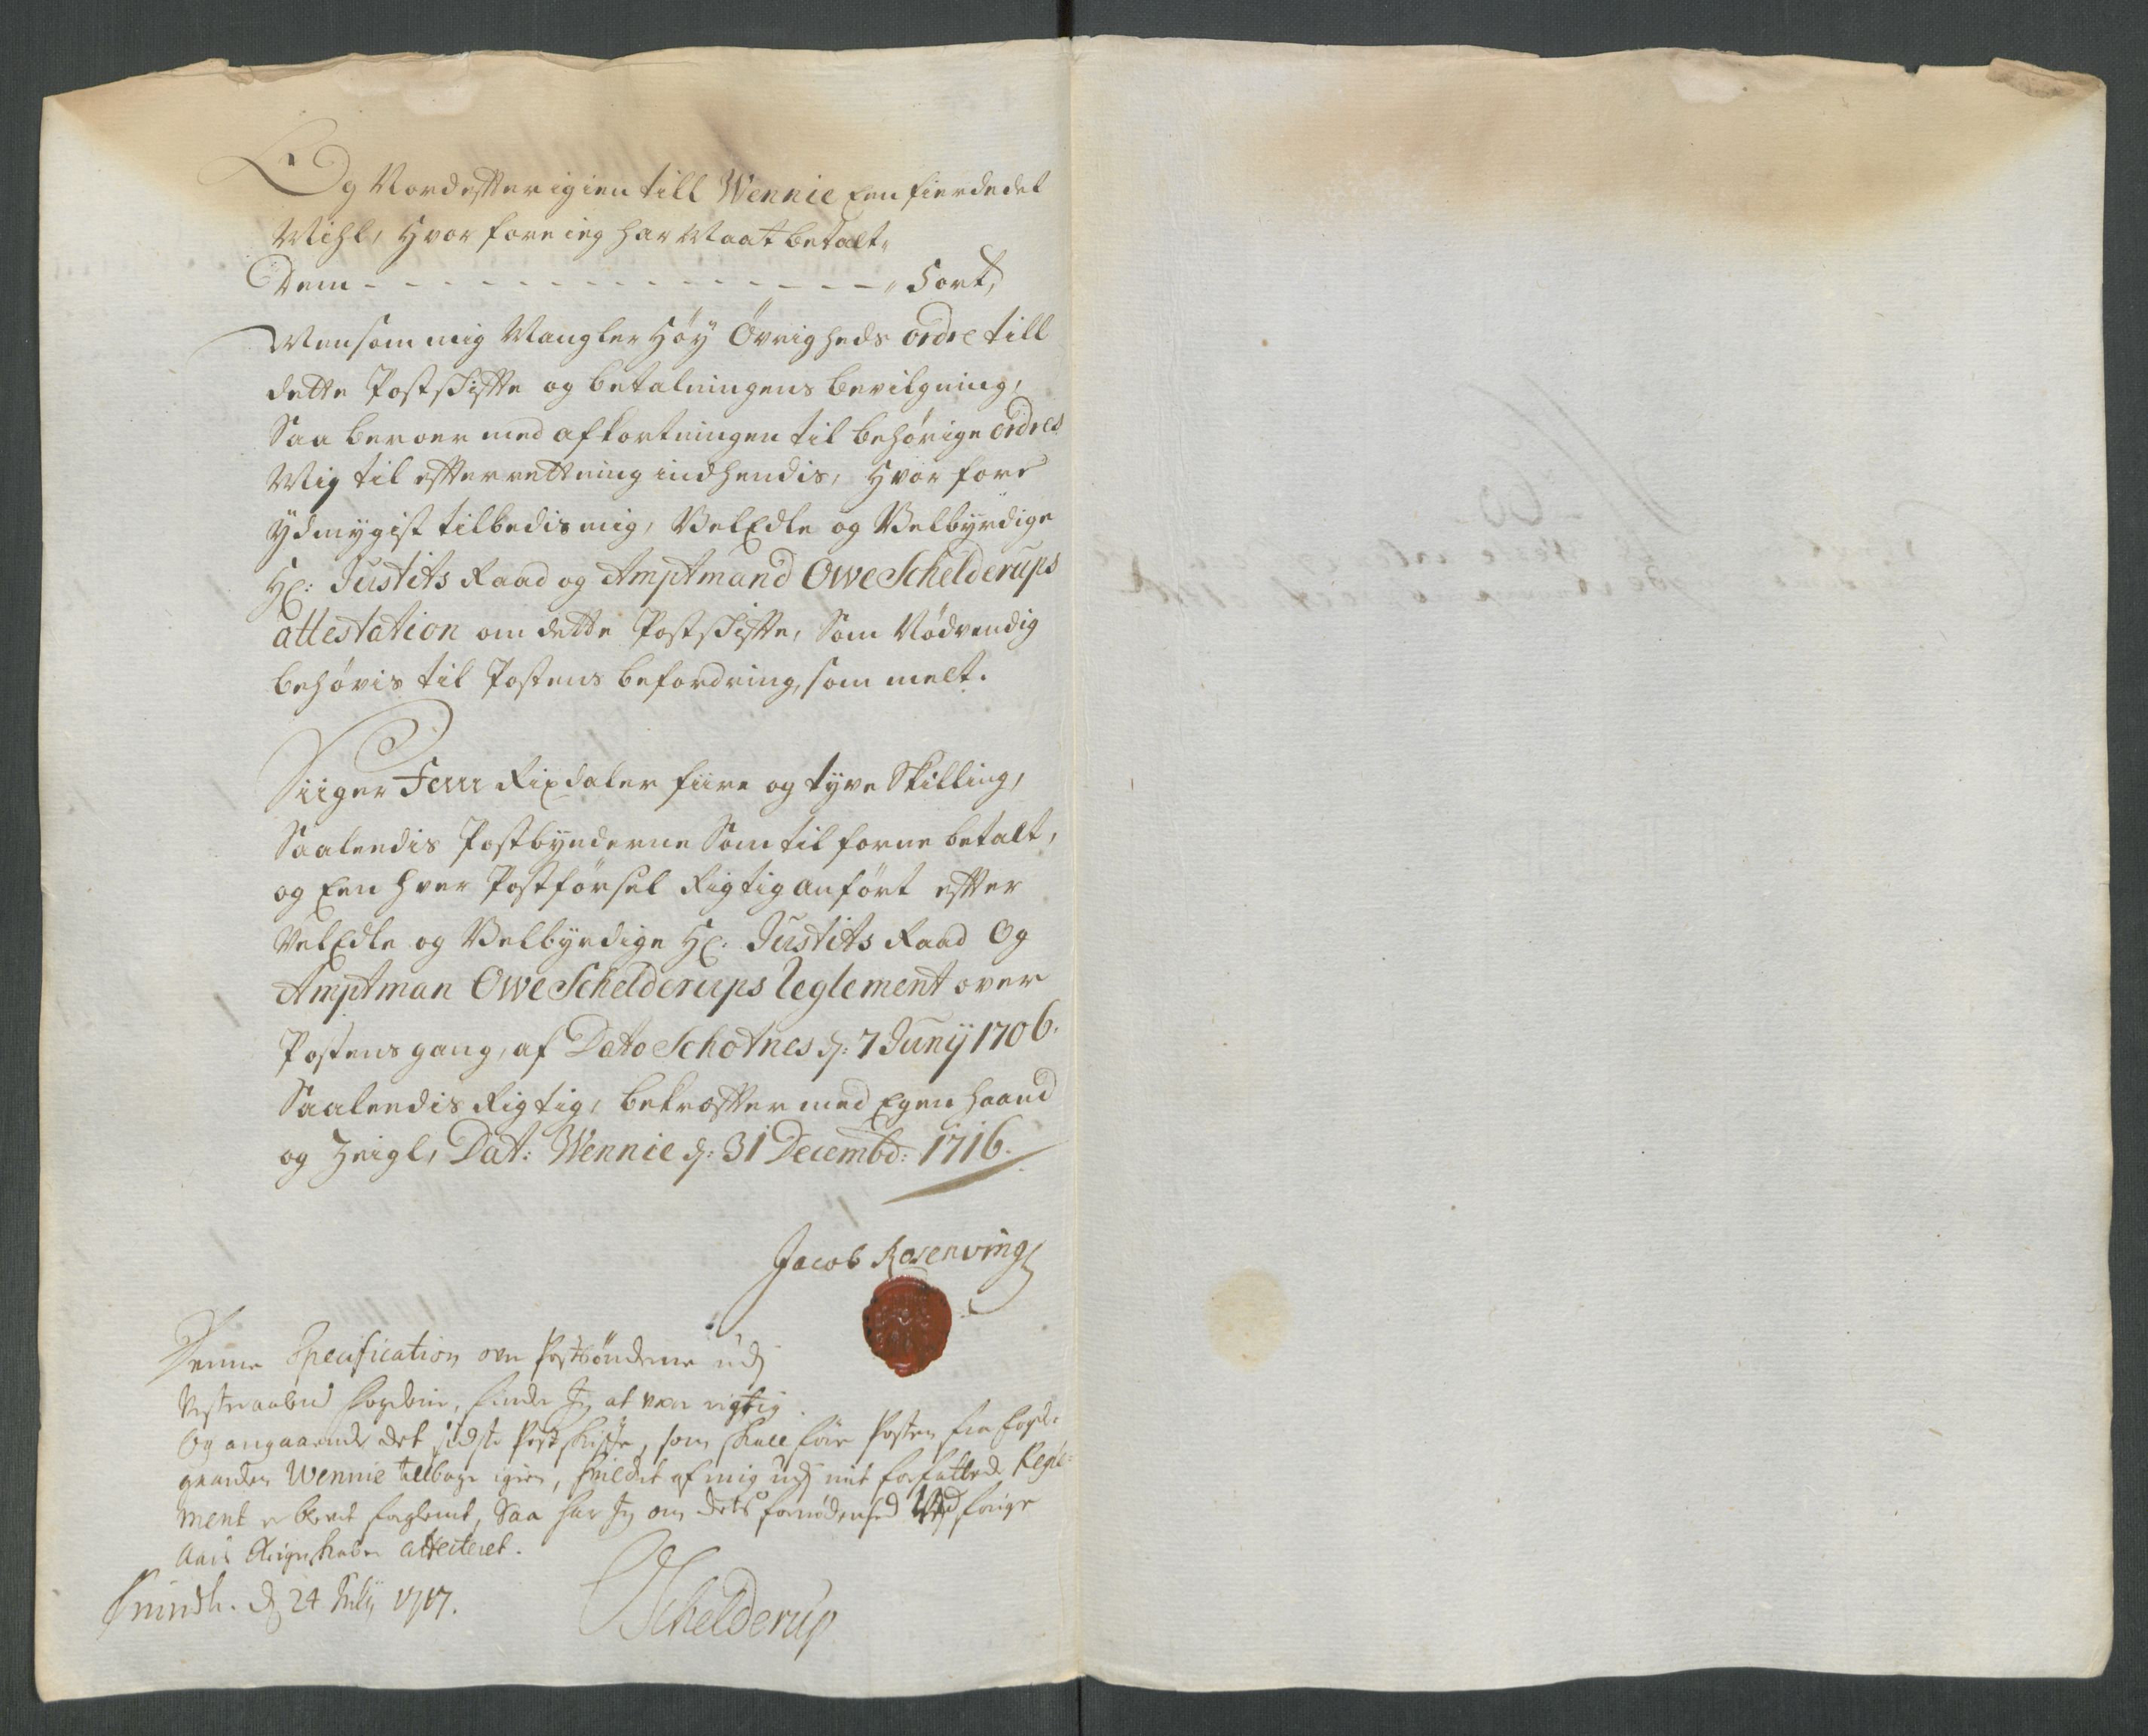 Og Nordefter igien till Wennie Een fierdedel
Miihl, Hvor fore ieg har Maat betalt
Dem - - - - - - - - - - - - - - - 5 ort,
Men som mig Mangler Høy Øvrigheds ordre till
dette Postskiffte og betalningens bevilgning,
Saa beroer med afkortningen til behørige ordres
Mig til efterrettning indhendis, Hvor fore
ÿdmygist tilbedis mig, VelEdle og Velbÿrdige
Hr: Justits Raad og Amptmand Owe Schelderups
attestation om dette Postskiffte, Som Nødvendig
behøvis til Postens befordring, som melt.
Siiger Fem Rixdaler fiire og tyve Skilling,
Saaleedis Postbønderne Som til forne betalt,
og Een hver Postførsel Rigtig anført efter
VelEdle og Velbÿrdige Hr. Justits Raad Og
Amptman Owe Schelderups Reglement over
Postens gang, af Dato Schotnes d: 7 Junij 1706.
Saaleedis Rigtig, bekræfter med Egen Haand
og Zeigl, Dat: Wennie d: 31 Decembr: 1716.
Jacob Rosenving
Denne Specification over Postbønderne udj
fogderie, finder Jeg at være rigtig
Og angaaende det sidste Postskiffte, som skall føre Posten fra fogde-
gaarden Wennie tilbage igien, hvilket af mig udj mit forfattede Regle-
ment er blevet forglemt, Saa har Jeg om dets fornødenhed Ved forige
Aars Regenskaber attesteret.
d 24 Julij 1717.
OSchelderup